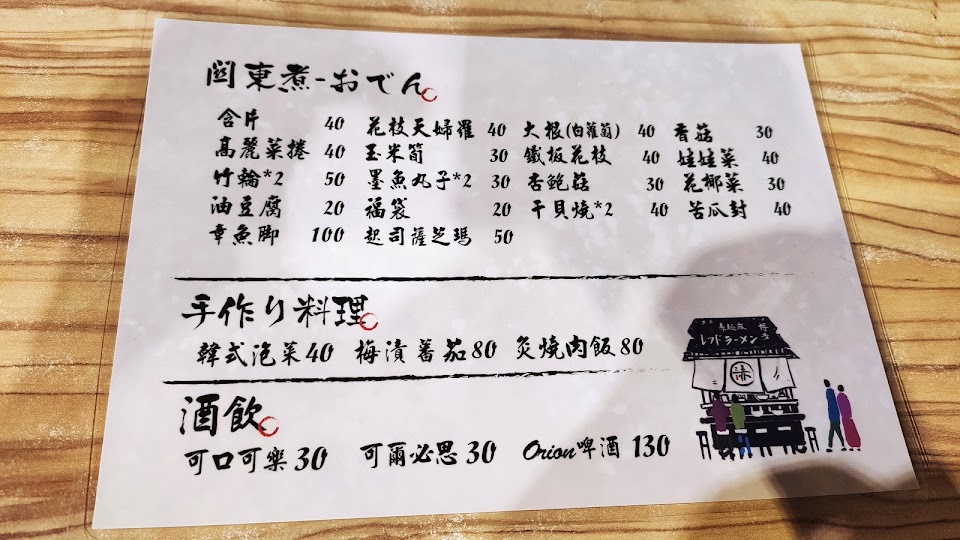 関東煮-おでん
含片 40 花枝天婦羅 40 大根(白蘿蔔) 40 香菇 30
高麗菜捲 40 玉米筍 30 鐵板花枝 40 娃娃菜 40
竹輪*2 50 墨魚丸子*2 30 杏鮑菇 30 花椰菜 30
油豆腐 20 福袋 20 干貝燒*2 40 苦瓜封 40
章魚脚 100 起司薩芝瑪 50
手作り料理
韓式泡菜40 梅漬蕃茄80 炙燒肉飯80
酒飲
可口可樂30 可爾必思30 Orion啤酒130
レフドラーメン